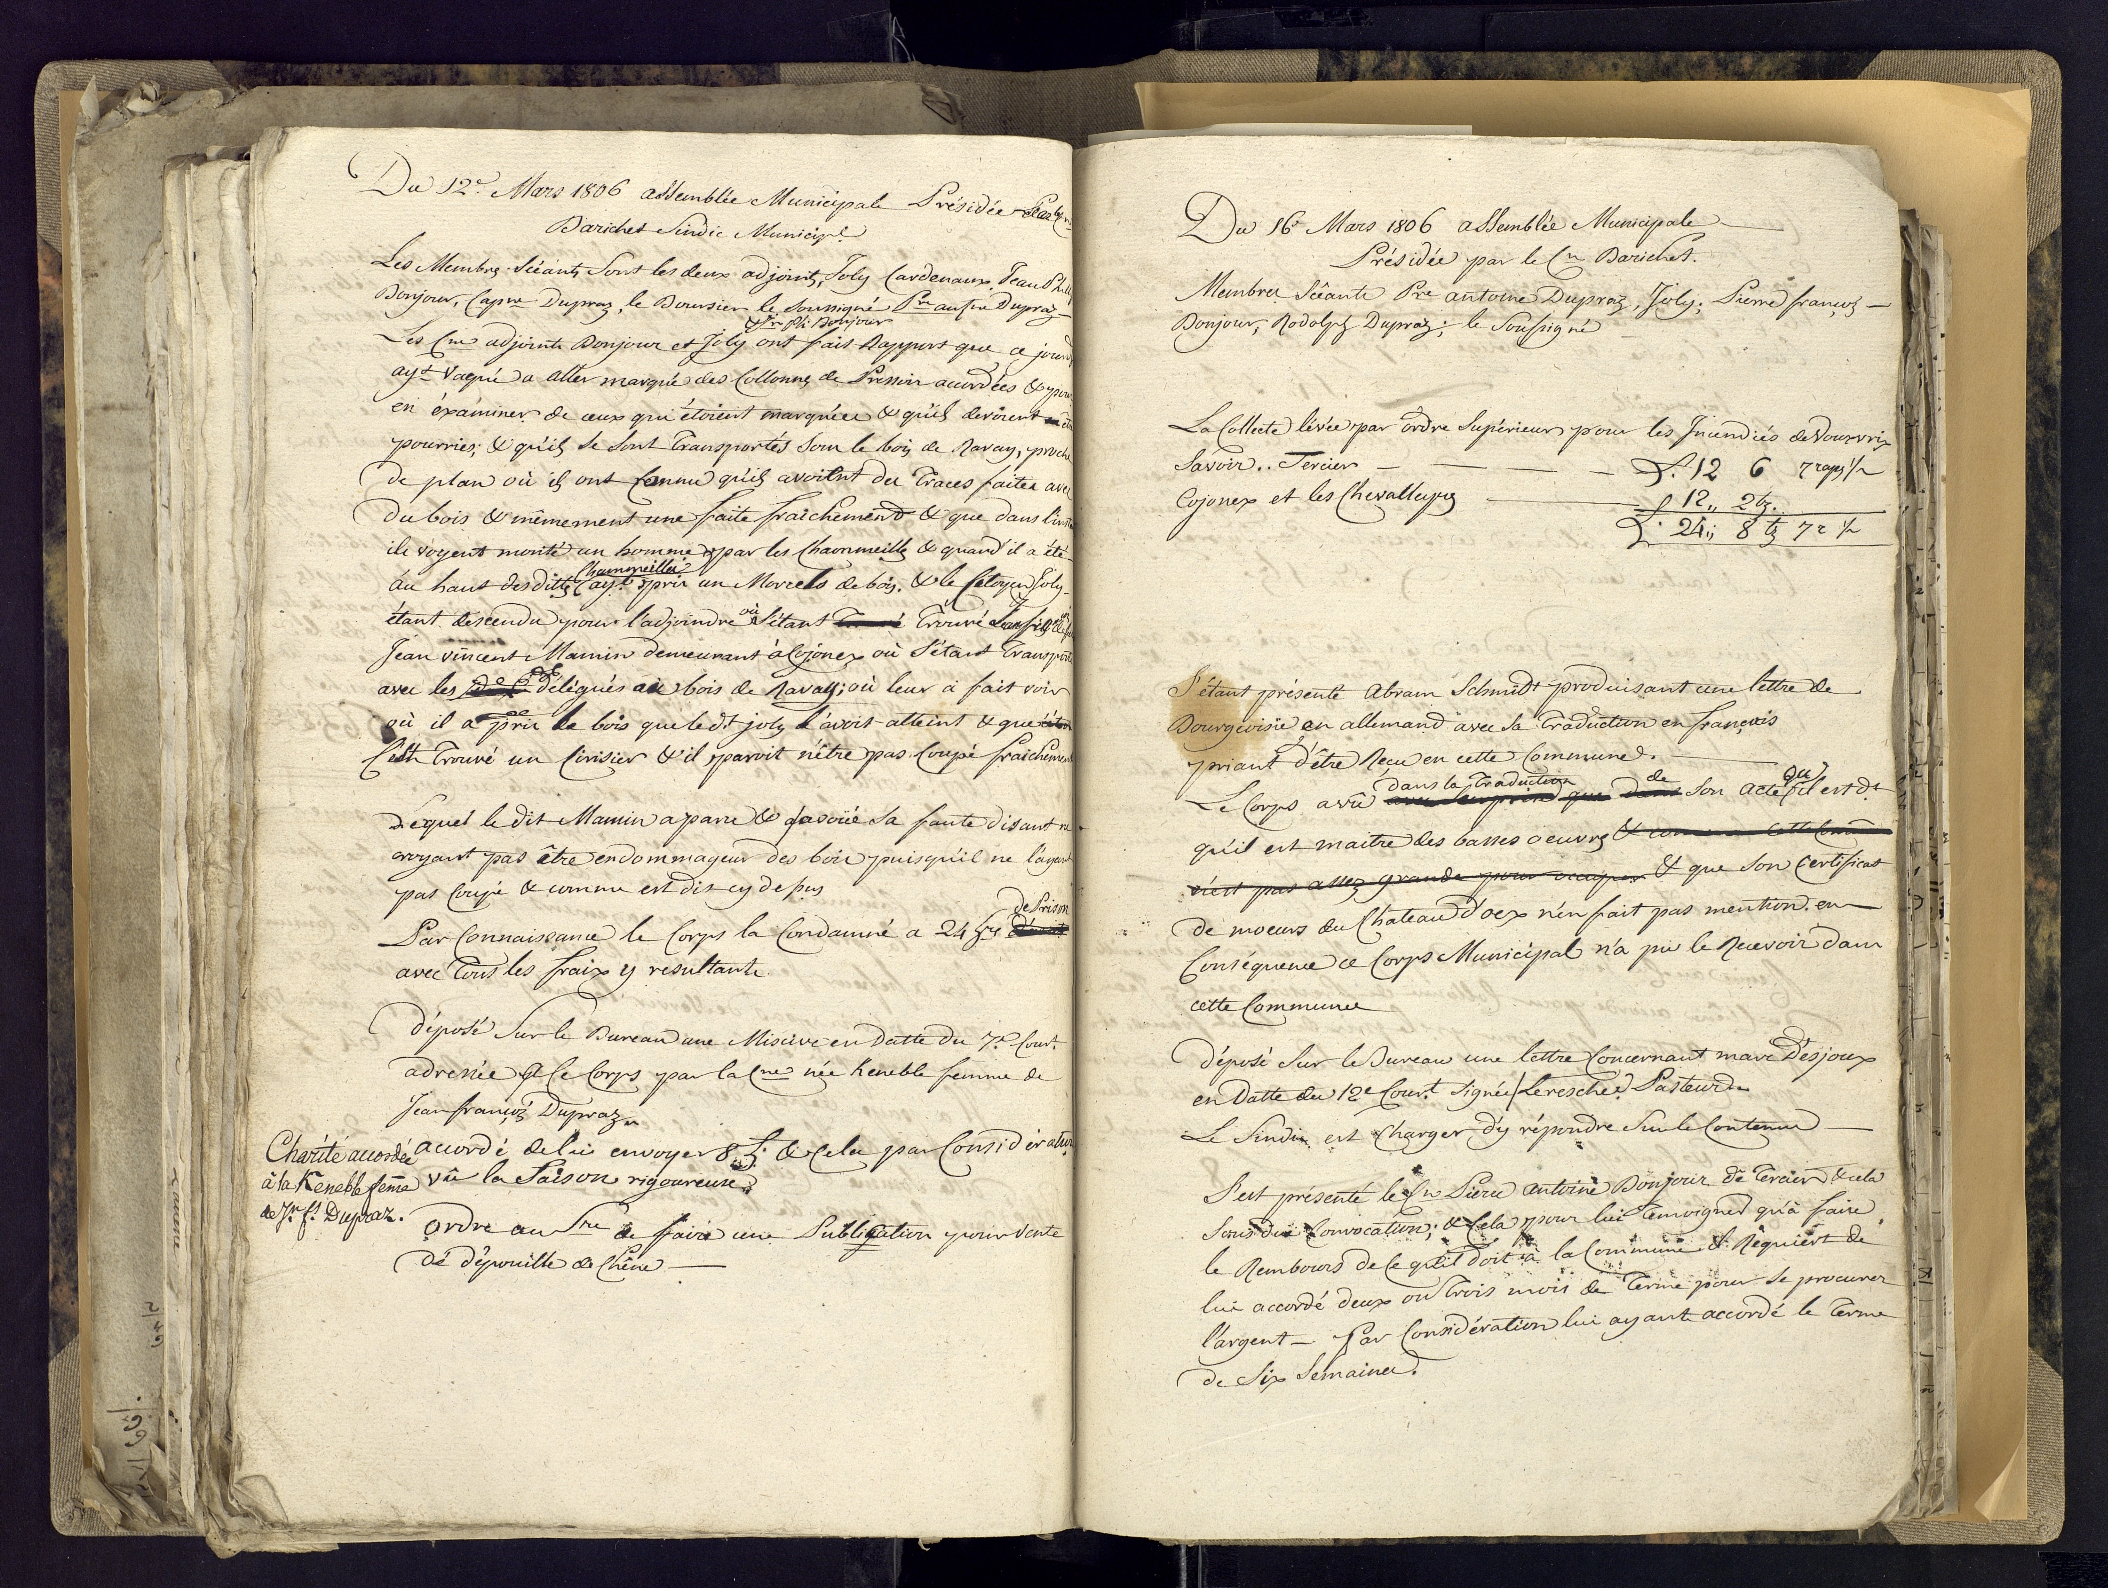 Du 12e. Mars 1806 assemblée Municipale Présidée
Barichet Sindic Municipl.
Les Membrs Séants Sont les deux adjoint, Joly Cardenaux, Jean Phi
Bonjour, Capne Dupraz, le Boursier le soussigné Dupraz
& Jn Ph: Bonjour
Les Cns adjoints Bonjour et Joly ont fait Rapport que ce jourd
ayt vaqué a aller marqué des Collonns de Pressoir accordées & pour
en éxaminer de ceux qui étoient marquées & qu'ils devoient
pourries; & qu'ils Se Sont Transportés Sous le bois de Ravay, proche
de plan où ils ont connu qu'ils avoient des Traces faites avec
du bois & mêmement une faite fraichement & que dans l'inst
ils voyent monté un homme par les Chaonmeills & quand il a été
Chaumeilles
au haut desdittes ayt pris un Morcels de bois. & le Citoyen Joly
étant descendu pour l'adjoindre où S'étant Trouvé
Jean vincent Mamin demeurant à Cojonex où S'étant Transporté
avec les délégués au bois de Ravay; où leur a fait voir
où il a pris le bois que le dt joly l'avoit atteint & que
C'est Trouvé un Cirisier & il paroit n'être pas Coupé fraichement
Lequel le dit Mamin a paru & a avoüé Sa faute disant ne
croyant pas être endommageur des bois puisqu'il ne l'ayant
pas Coupé & comme est dit cy depus
de Prison
Par Connaissance le Corps la Condamné a 24 hrs
avec Tous les fraix y resultants
déposé Sur le Bureau une Miscive en Datte du 7e. Court.
adressée a Ce Corps par la Cne née Keneble femme de
Jean françois Dupraz
Charité accordée
à la Keneble feme
de Jn fs Dupraz.
accordé de lui envoyer 8 L. & Cela par Considération
vû la Saison rigoureuse
Ordre au Sre de faire une Publication pour vente
de dépouille de Chêne
Du 16e Mars 1806 assemblée Municipale
Présidée par le Cn Barichet.
Membres Séants Pre antoine Dupraz, Joly, Pierre françois
Bonjour, Rodolph Dupraz, le Soussigné
La Collecte levée par ordre Supérieur pour les Incendiés de Vouvrix
Savoir.. Tercier L. 12 6 7 raps ½
Cojonex et les Chevalleyrs 12,, 2 bz.
L. 24,, 8 bz 7 r ½
S'étant présenté Abram Schmidt produisant une lettre de
Bourgeoisie en allemand avec Sa Traduction en français
priant d'être Reçu en cette Commune.
dans la Traduction de qu
Le Corps a vû que dans Son acte il est dt
qu'il est maitre des basses oeuvrs & comme cette Comne
n'est pas assez grande pour occuper & que Son Certificat
de moeurs du Chateau d'oex n'en fait pas mention. en
Conséquence ce Corps Municipal n'a pu le Recevoir dans
cette Commune
déposé Sur le Bureau une lettre Concernant marc Désjoux
en Datte du 12e Court. Signée Leresche Pasteur
Le Sindic est Charger d'y répondre Sur le Contenu
S'est présenté le Cn Pierre antoine Bonjour de Tercier & cela
Sous due Convocation; & Cela pour lui Temoigner qu'à faire
le Rembours de Ce qu'il doit à la Commune & Réquiért de
lui accordé deux ou Trois mois de Terme pour Se procurer
l'argent — Par Considération lui ayant accordé le Terme
de Six Semaines.